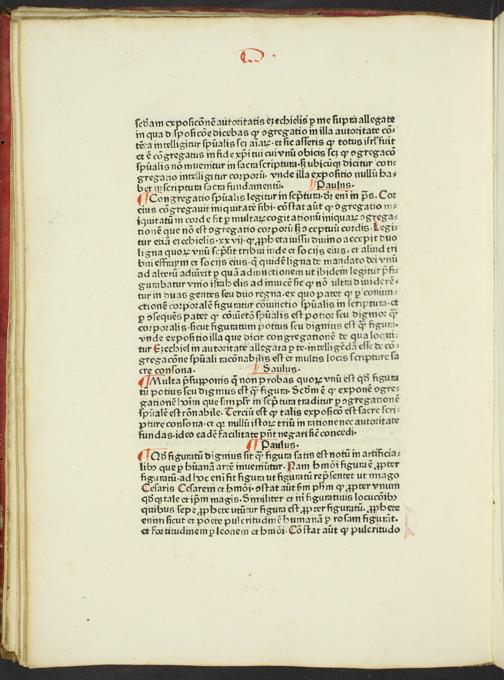 scd̄am expoſicōnē autoritatis eȝechielis p me ſupra allegate
in qua d. ſpoſicōe dicebas ꝙ ꝯgregatio in illa autoritate cō-
tēta intelligitur ſpūalis scȝ aīarꝫ. et ſic aſſeris ꝙ totus iſrl̄ fuit
et ē cōgregatus in fide xp̄i tui cui vnū obicis scȝ ꝙ ꝯgregacō
ſpūalis nō inuenitur in sacra scriptura. ſȝ ubicūqȝ dicitur con
gregatio intelligitur corporū. vnde illa expoſitio nullū ha-
bet in scriptura sacra fundamentū. Paulus.
Congregatio ſpūalis legitur in scꝑtura. dr̄ eni in pˢ. Cor
eius cōgregauit iniquitatē ſibi. cōſtat aūt ꝙ ꝯgregatio in-
iquitatū in corde fit p multarꝫ cogitationū iniquarꝫ ꝯgrega-
tionē que nō eſt ꝯgregatio corporū ſȝ ꝯceptuū cordis. Legi-
tur etiā eȝechielis. xxvij. ꝙ ꝓpheta iuſſu diuino accepit duo
ligna quorꝫ vnū scp̄ſit tribui iude et socijs eius. et aliud tri
bui effraym et socijs eius. q̄ quidē ligna de mandato dei vnū
ad alterū adiūxit p quā adiunctionem ut ibidem legitur p̄fi-
gurabatur vnio iſrahelis ad inuicē ſic ꝙ nō ultra diuiderē-
tur in duas gentes seu duo regna. ex quo patet ꝙ p coniun-
ctionē corporalē figuratur cōiunctio ſpūalis in scriptura. et
p ꝯſequēs patet ꝙ cōiuēctō ſpūalis eſt potior seu dignior ꝙ̄
corporalis. ſicut figuratum potius seu dignius eſt ꝙ̄ figura.
vnde expoſitio illa que dicit congregationē de qua loqui-
tur Eȝechiel in autoritate allegata p te. intelligēdā eſſe de cō-
gregacōne ſpūali racōnabilis eſt et multis locis scripture sa
cre consona. Saulus.
Multa p̄ſupponis q̄ non probas quorꝫ vnū eſt ꝙ figura
tū potius seu dignius eſt ꝙ̄ figura. Scd̄m ē ꝙ exponē ꝯgre-
gationē in scp̄tura traditur p ꝯgregationē
ſpūalē eſt rōnabile. Terciū eſt ꝙ talis expoſicō eſt sacre scri-
pture consona. et ꝙ nullū iſtorꝫ triū in ratione nec autoritate
fundas. ideo eadē facilitate pn̄t negari ſicē concedi.
Paulus.
Qd̄ figuratū dignius ſit ꝙ̄ figura satis eſt notū in artificia-
libꝰ que p hūanā artē inueniūtur. Nam hm̄oi figura ē ꝓpter
figuratū. ad hoc eni fit figura ut figuratū repn̄tet ut imago
Cesaris Cesarem et hm̄oi. ꝯſtat aūt ꝙ ꝓpter vnum
qd̄qȝ tale et ip̄m magis. Similiter et in figuratiuis locucōibꝰ
quibus sepe ꝓphete utūtur figura eſt ꝓpter figuratū. ꝓphete
enim ſicut et poete pulcritudinē humanā p rosam figurāt.
et fortitudinem p leonem et hm̄oi. Cōſtat aūt ꝙ pulcritudo